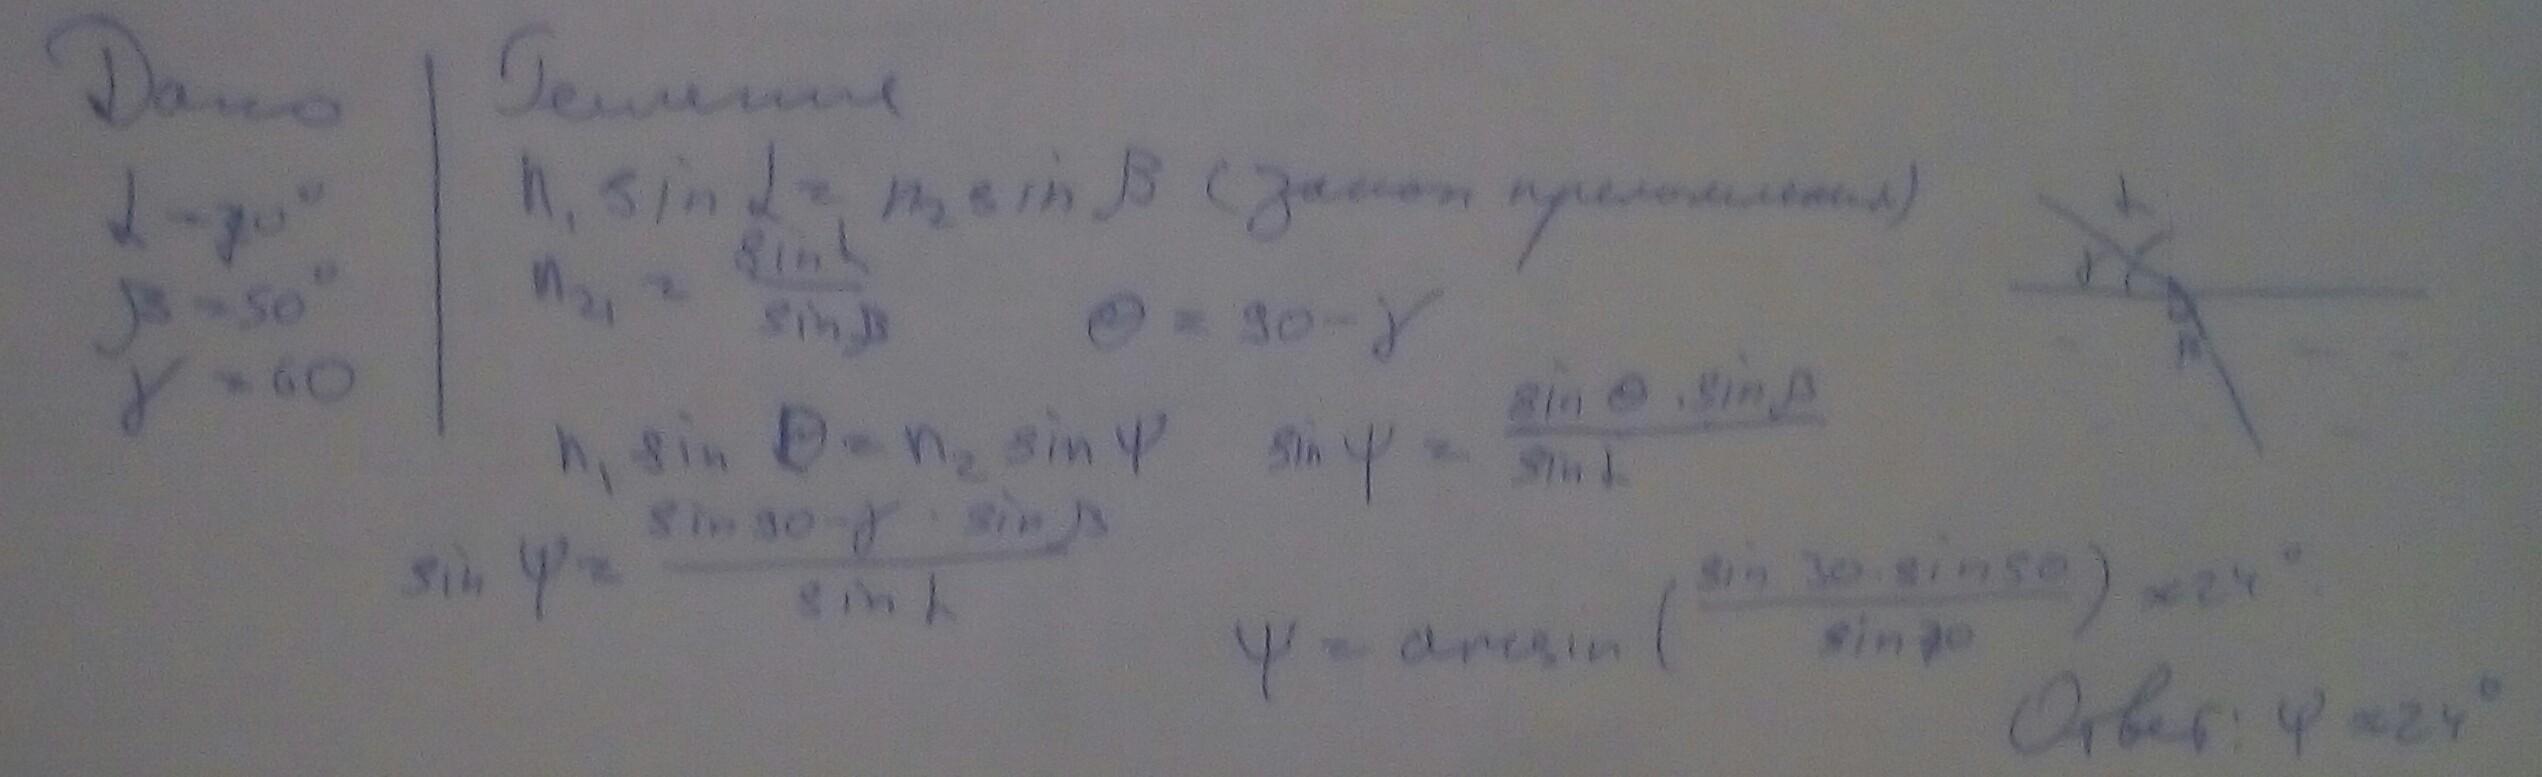 Дано
α = 70°
β = 50°
γ = 60
Решение
n₁ sin α = n₂ sin β (закон преломления)
n₂₁ = sin α / sin β    Θ = 90 - γ
n₁ sin Θ = n₂ sin ψ    sin ψ = sin Θ · sin β / sin α
sin ψ = sin 90-γ · sin β / sin α
ψ = arcsin (sin 30 · sin 50 / sin 70) ≈ 24°
Ответ: ψ ≈ 24°
α
γ
β